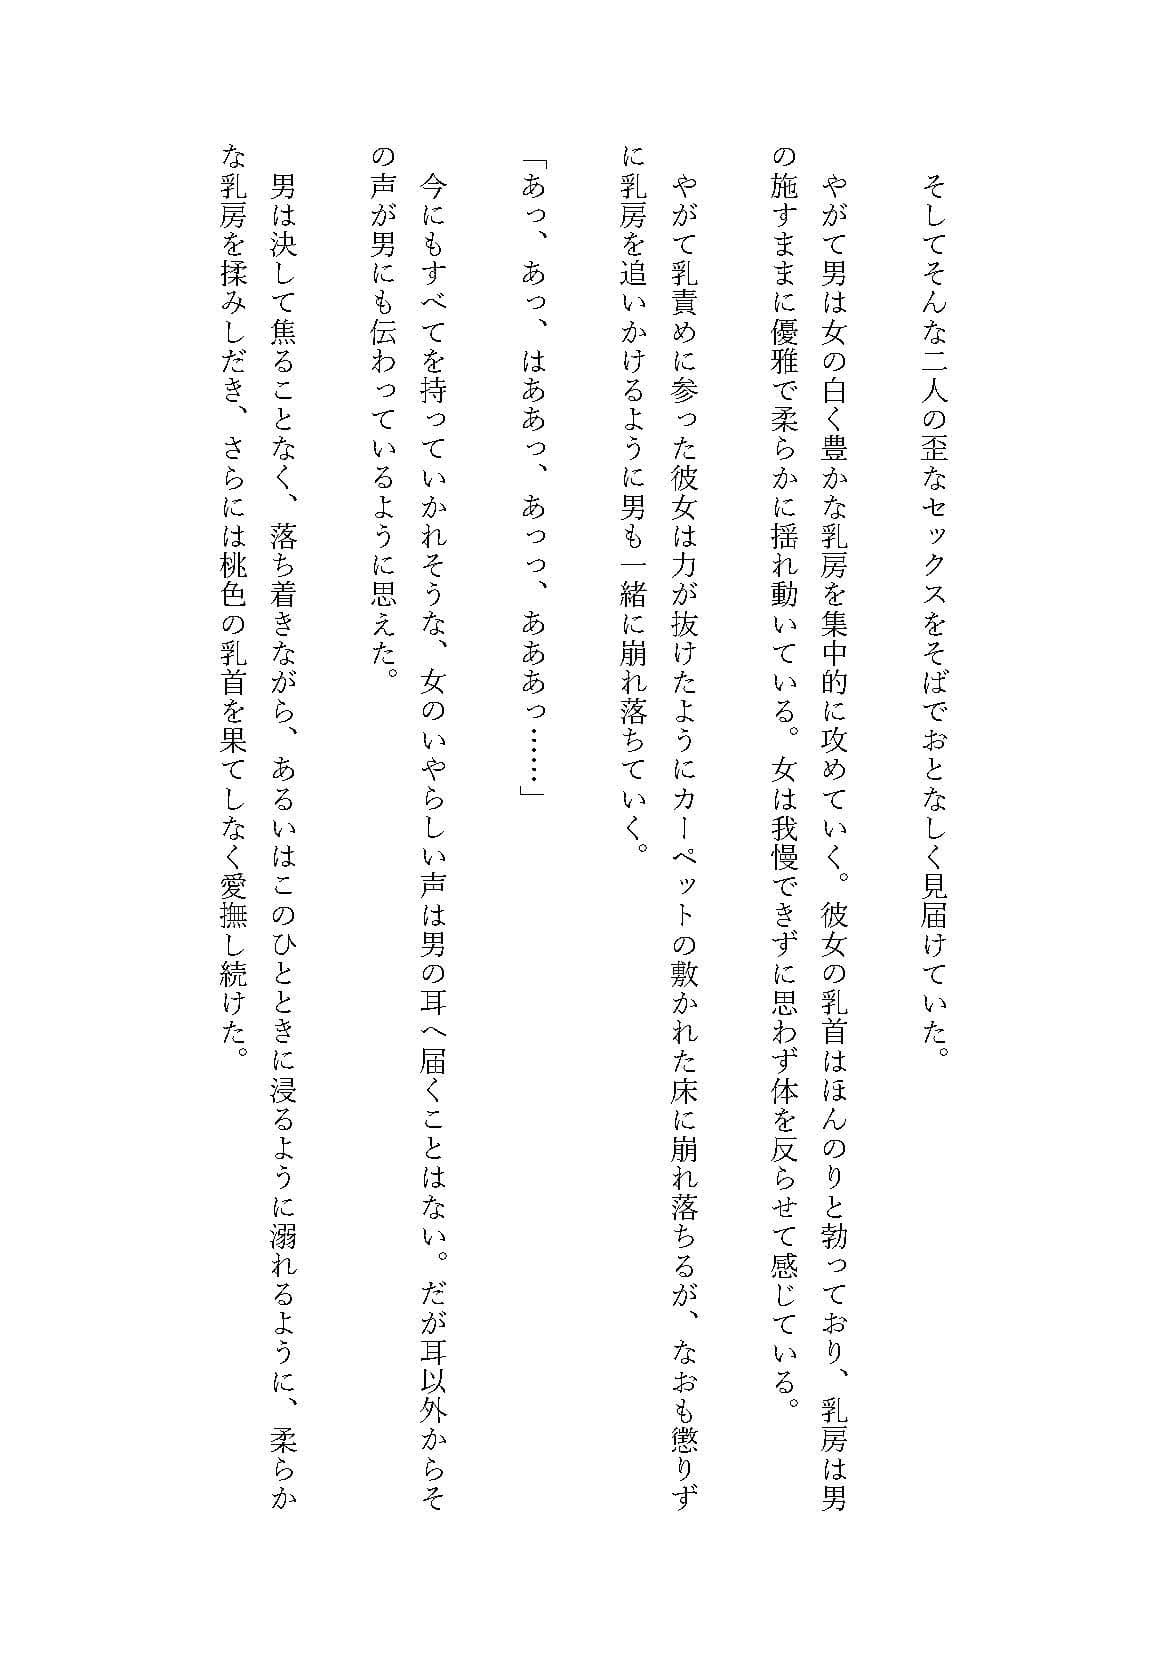 そしてそんな二人の歪なセックスをそばでおとなしく見届けていた。
やがて男は女の白く豊かな乳房を集中的に攻めていく。彼女の乳首はほんのりと勃っており、乳房は男
の施すままに優雅で柔らかに揺れ動いている。女は我慢できずに思わず体を反らせて感じている。
やがて乳責めに参った彼女は力が抜けたようにカーペットの敷かれた床に崩れ落ちるが、なおも懲りず
に乳房を追いかけるように男も一緒に崩れ落ちていく。
「あっ、あっ、はああっ、あっっ、あああっ……」
今にもすべてを持っていかれそうな、女のいやらしい声は男の耳へ届くことはない。だが耳以外からそ
の声が男にも伝わっているように思えた。
男は決して焦ることなく、落ち着きながら、あるいはこのひとときに浸るように溺れるように、柔らか
な乳房を揉みしだき、さらには桃色の乳首を果てしなく愛撫し続けた。